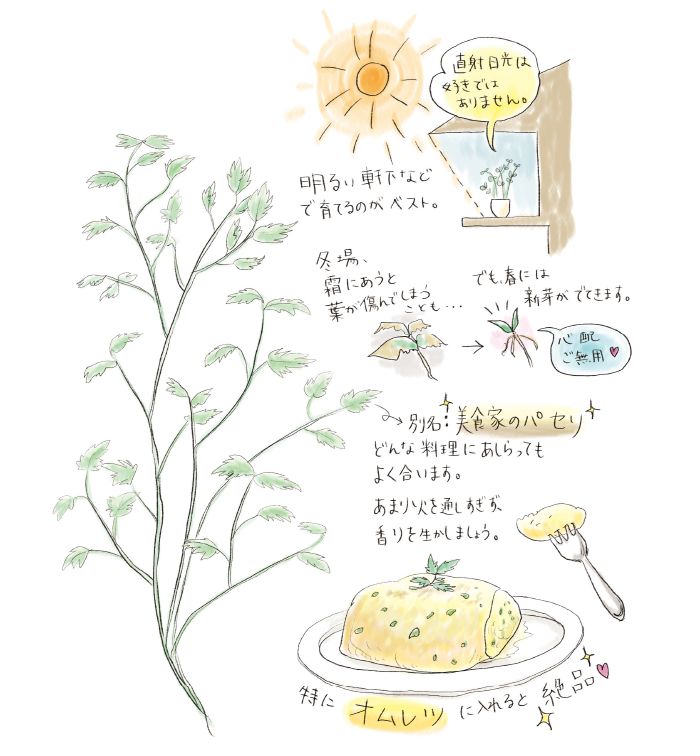 直射日光は
好きでは
ありません。
明るい軒下など
で育てるのがベスト。
冬場、
霜にあうと
葉が傷んでしまう
ことも・・・
でも、春には
新芽がでてきます。
心配
ご無用
別名：美食家のパセリ
どんな料理にあしらっても
よく合います。
あまり火を通しすぎず、
香りを生かしましょう。
特にオムレツに入れると絶品